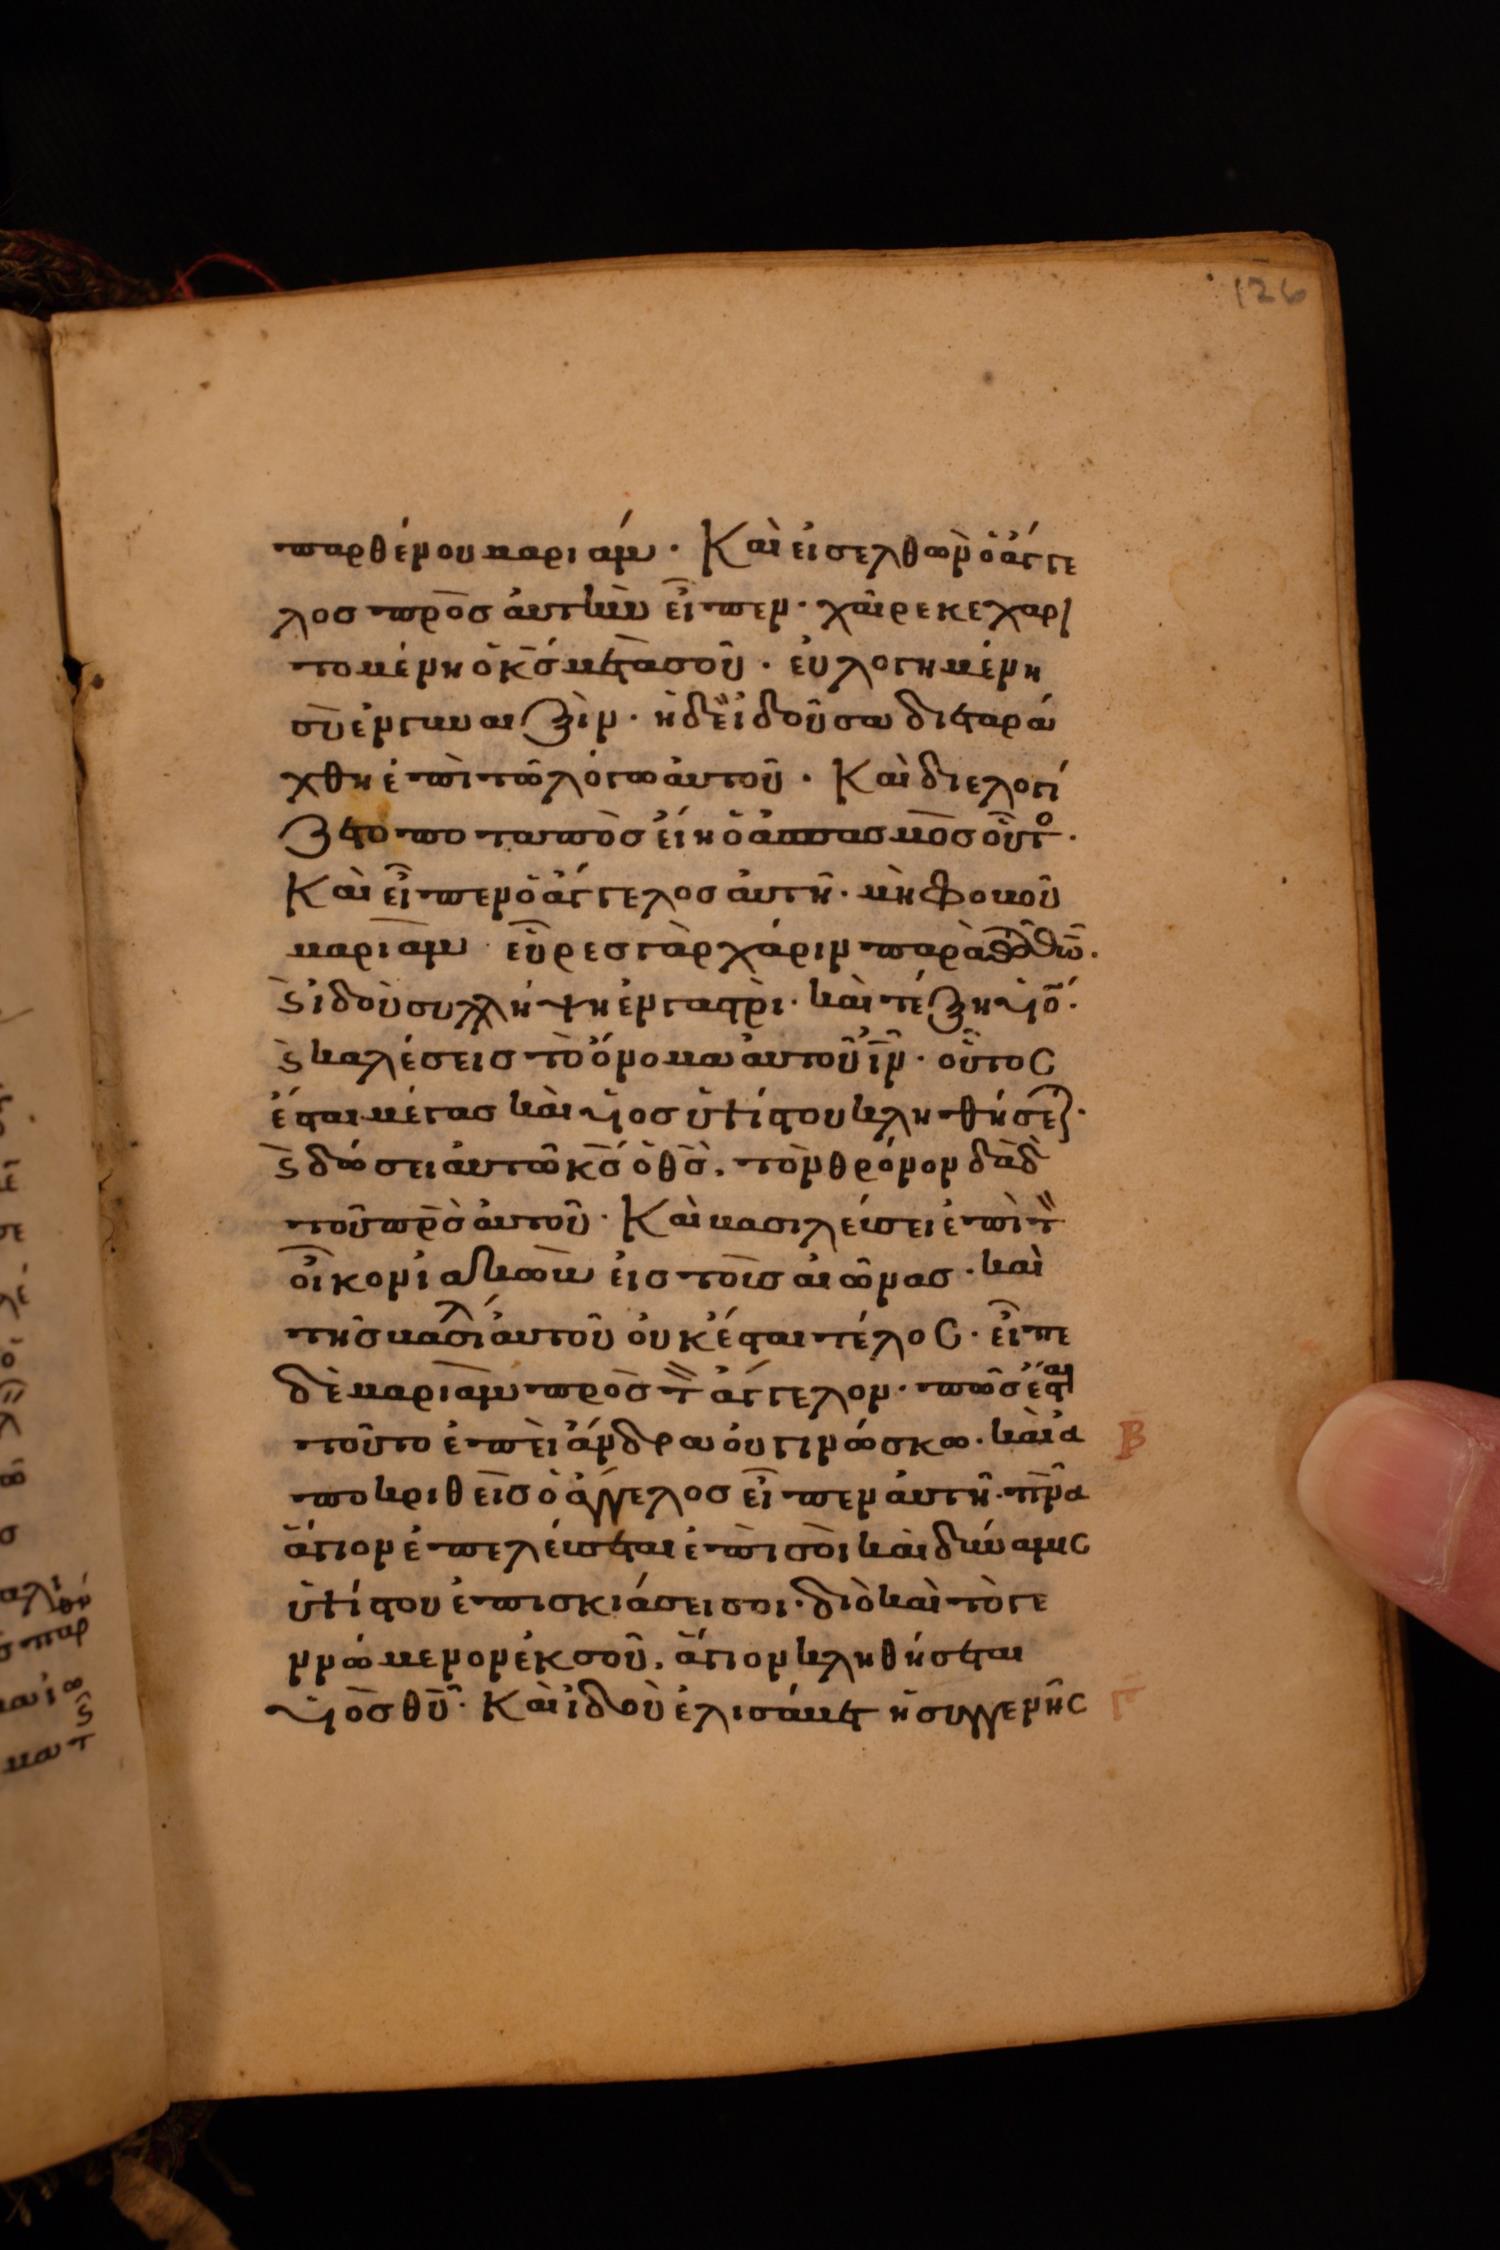 126
παρθένου μαριάμ · Καὶ εἰσελθὼν ὁ ἄγγε
λος πρὸς ἀυτὴν εἶπεν · χαῖρε κεχαρι
τομένη ὁ κς μετὰ σοῦ · ἐυλογημένη
σὺ ἐν γυναιξὶν · ἡ δὲ ἰδοῦσα διεταρά
χθη ἐπὶ τῶ λόγω ἀυτοῦ · Καὶ διελογί
ζετο ποταπὸς εἴη ὁ ἀσπασμὸς οὗτο ·
Καὶ εἶπεν ὁ ἄγγελος ἀυτῆ · μὴ φοβοῦ
μαριὰμ · εὗρες γὰρ χάριν παρὰ θῶ ·
ϗ ἰδοὺ συλλήψη ἐν γαστρὶ · καὶ τέξη υἱό ·
ϗ καλέσεις τὸ ὄνομα ἀυτοῦ ἰν · οὗτος
ἔσται μέγας καὶ υἱος ὑψίστου κληθήσε ·
ϗ δώσει ἀυτῶ κς ὁ θς, τὸν θρόνον δαδ
τοῦ πρς ἀυτοῦ · Καὶ βασιλεύσει ἐπὶ τ
οἶκον ἰακὼβ εἰς τοὺς αἰῶνας · καὶ
τῆς βασιλ ἀυτοῦ ὀυκ ἔσται τέλος · εἶπε
δὲ μαριὰμ πρὸς τ ἄγγελον · πῶς ἔσται
τοῦτο ἐπεὶ ἄνδρα ὀυ γινώσκω · καὶ ἀ
Β
ποκριθεὶς ὁ ἄγγελος εἶπεν ἀυτῆ · πνα
ἅγιον ἐπελέυσεται ἐπὶ σὲ καὶ δύναμις
ὑψίστου ἐπισκιάσει σοι · διὸ καὶ τὸ γε
ννώμενον ἐκ σοῦ, ἅγιον κληθήσεται
υἱὸς θυ · Καὶ ἰδοὺ ἐλισάβετ ἡ συγγενῆς
Γ